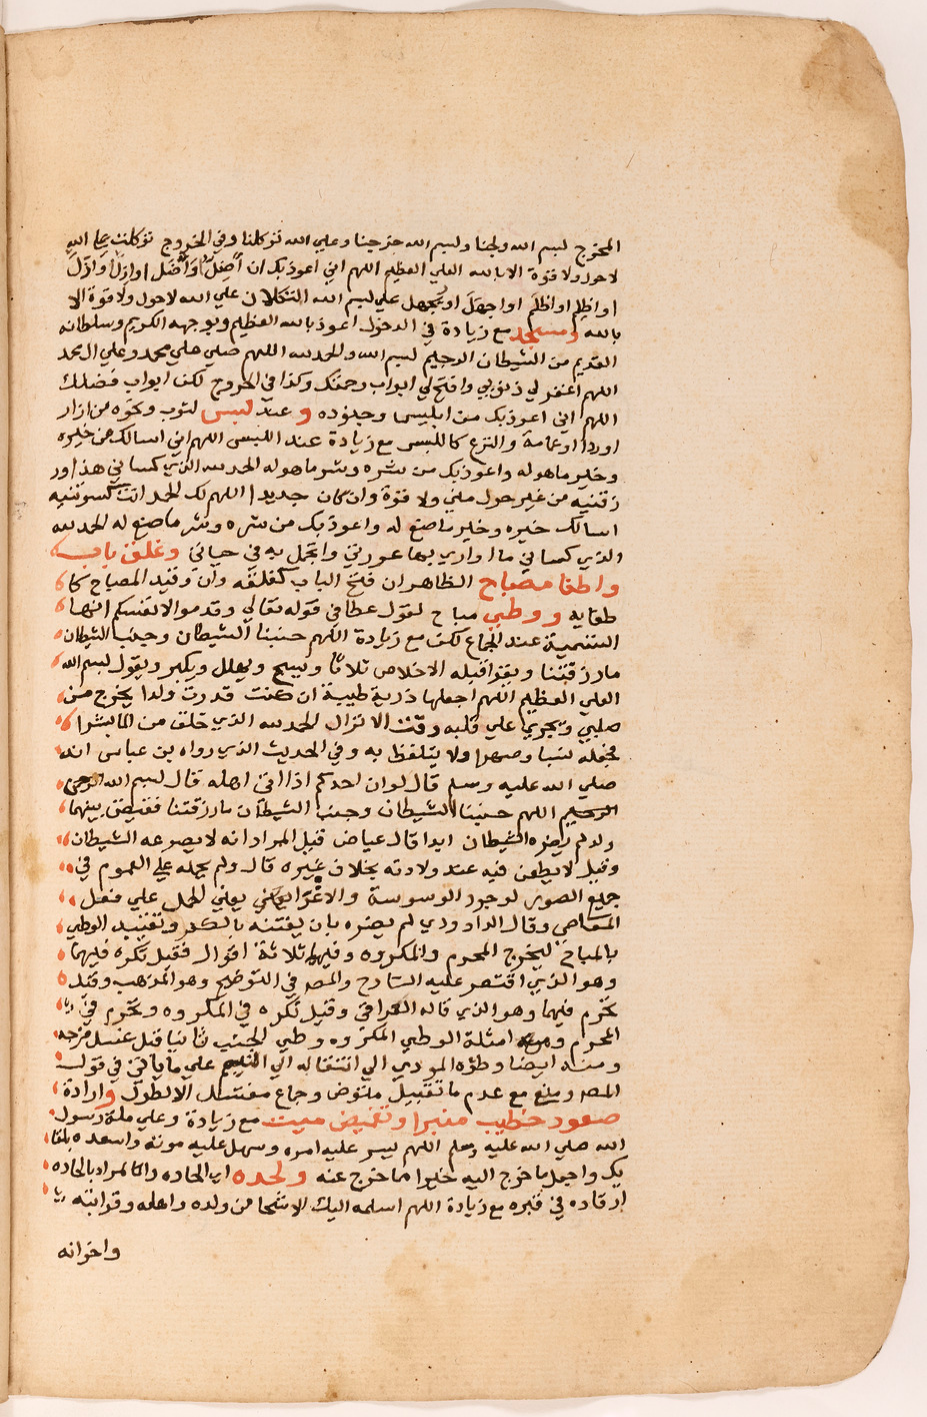 المخرج لبسم الله ولجنا ولبسم الله خرجنا وعلي الله توكلنا وفي الخروج توكلت علي الله
لا حول ولا قوة الا بالله العلي العظيم اللهم اني اعوذ بك ان اضل او اضل او ازل او ازل
او اظلم او اظلم او اجهل او يجهل علي لبسم الله التكلان علي الله لا حول ولا قوة الا
بالله ومسجد مع زيادة في الدخول اعوذ بالله العظيم وبوجهه الكريم وسلطانه
القديم من الشيطان الرجيم لبسم الله والحمد لله اللهم صلي علي محمد وعلي ال محمد
اللهم اغفر لي ذنوبي وافتح لي ابواب رحمتك وكذا في الخروج لكن ابواب فضلك
اللهم اني اعوذ بك من ابليس وجنوده وعند لبس لثوب ونحوه من ازار
او ردا او عمامة والنزع كاللبس مع زيادة عند اللبس اللهم اني اسالك من خيره
وخير ما هو له واعوذ بك من شره وشر ما هو له الحمد لله الذي كساني هذا ور
زقنيه من غير حول مني ولا قوة وان كان جديدا اللهم لك الحمد انت كسوتنيه
اسالك خيره وخير ما صنع له واعوذ بك من شره وشر ما صنع له الحمد لله
الذي كساني ما اواري بها عورتي واتجمل به في حياتي وغلق باب
واطفا مصباح الظاهر ان فتح الباب كغلقه وان وقيد المصباح كا
طفايه ووطي مباح لقول عطا في قوله تعالي وقدموا لانفسكم انها
التسمية عند الجماع لكن مع زيادة اللهم جنبنا الشيطان وجنب الشيطان
ما رزقتنا ويقرا قبله الاخلاص ثلاثا ويسبح ويهلل ويكبر ويقول لبسم الله
العلي العظيم اللهم اجعلها ذرية طيبة ان كنت قدرت ولدا يخرج من
صلبي ويجري علي قلبه وقت الانزال الحمد لله الذي خلق من الما بشرا
فجعله نسبا وصهرا ولا يتلفظ به وفي الحديث الذي رواه بن عباس انه
صلي الله عليه وسلم قال لو ان احدكم اذا اتي اهله قال لبسم الله الرحمن
الرحيم اللهم جنبنا الشيطان وجنب الشيطان ما رزقتنا فقضي بينهما
ولد لم يضره الشيطان ابدا قال عياض قيل المراد انه لا يصرعه الشيطان
وقيل لا يطعن فيه عند ولادته بخلاف غيره قال ولم يحمله علي العموم في
جميع الصور لوجود الوسوسة والاغرا يعني الحمل علي فعل
المعاصي وقال الداوودي لم يضره بان يفتنه بالكفر وتقييد الوطي
بالمباح ليخرج المحرم والمكروه وفيهما ثلاثة اقوال فقيل تكره فيهما
وهو الذي اقتصر عليه الشارح والمصـ في التوضيح وهو المذهب وقيل
تحرم فيهما وهو الذي قاله القرافي وقيل تكره في المكروه وتحرم في
المحرم ومن امثلة الوطي المكروه وطي الجنب ثانيا قبل غسل فرجه
ومنه ايضا وطؤه المودي الي انتقاله الي التيمم علي ما ياتي في قول
المصـ ومنع مع عدم ما تقبيل متوض وجماع مغتسل الا لطول وارادة
صعود خطيب منبرا وتغميض ميت مع زيادة وعلي ملة رسول
الله صلي الله عليه وسلم اللهم يسر عليه امره وسهل عليه موته واسعده بلقا
يك واجعل ما خرج اليه خيرا مما خرج عنه ولحده اي الحاده والمراد بالحاده
ارقاده في قبره مع زيادة اللهم اسلمه اليك الاشحا من ولده واهله وقرابته
واخوانه